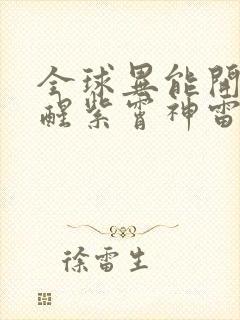 全球異能開
醒紫霄神雷
徐雷生